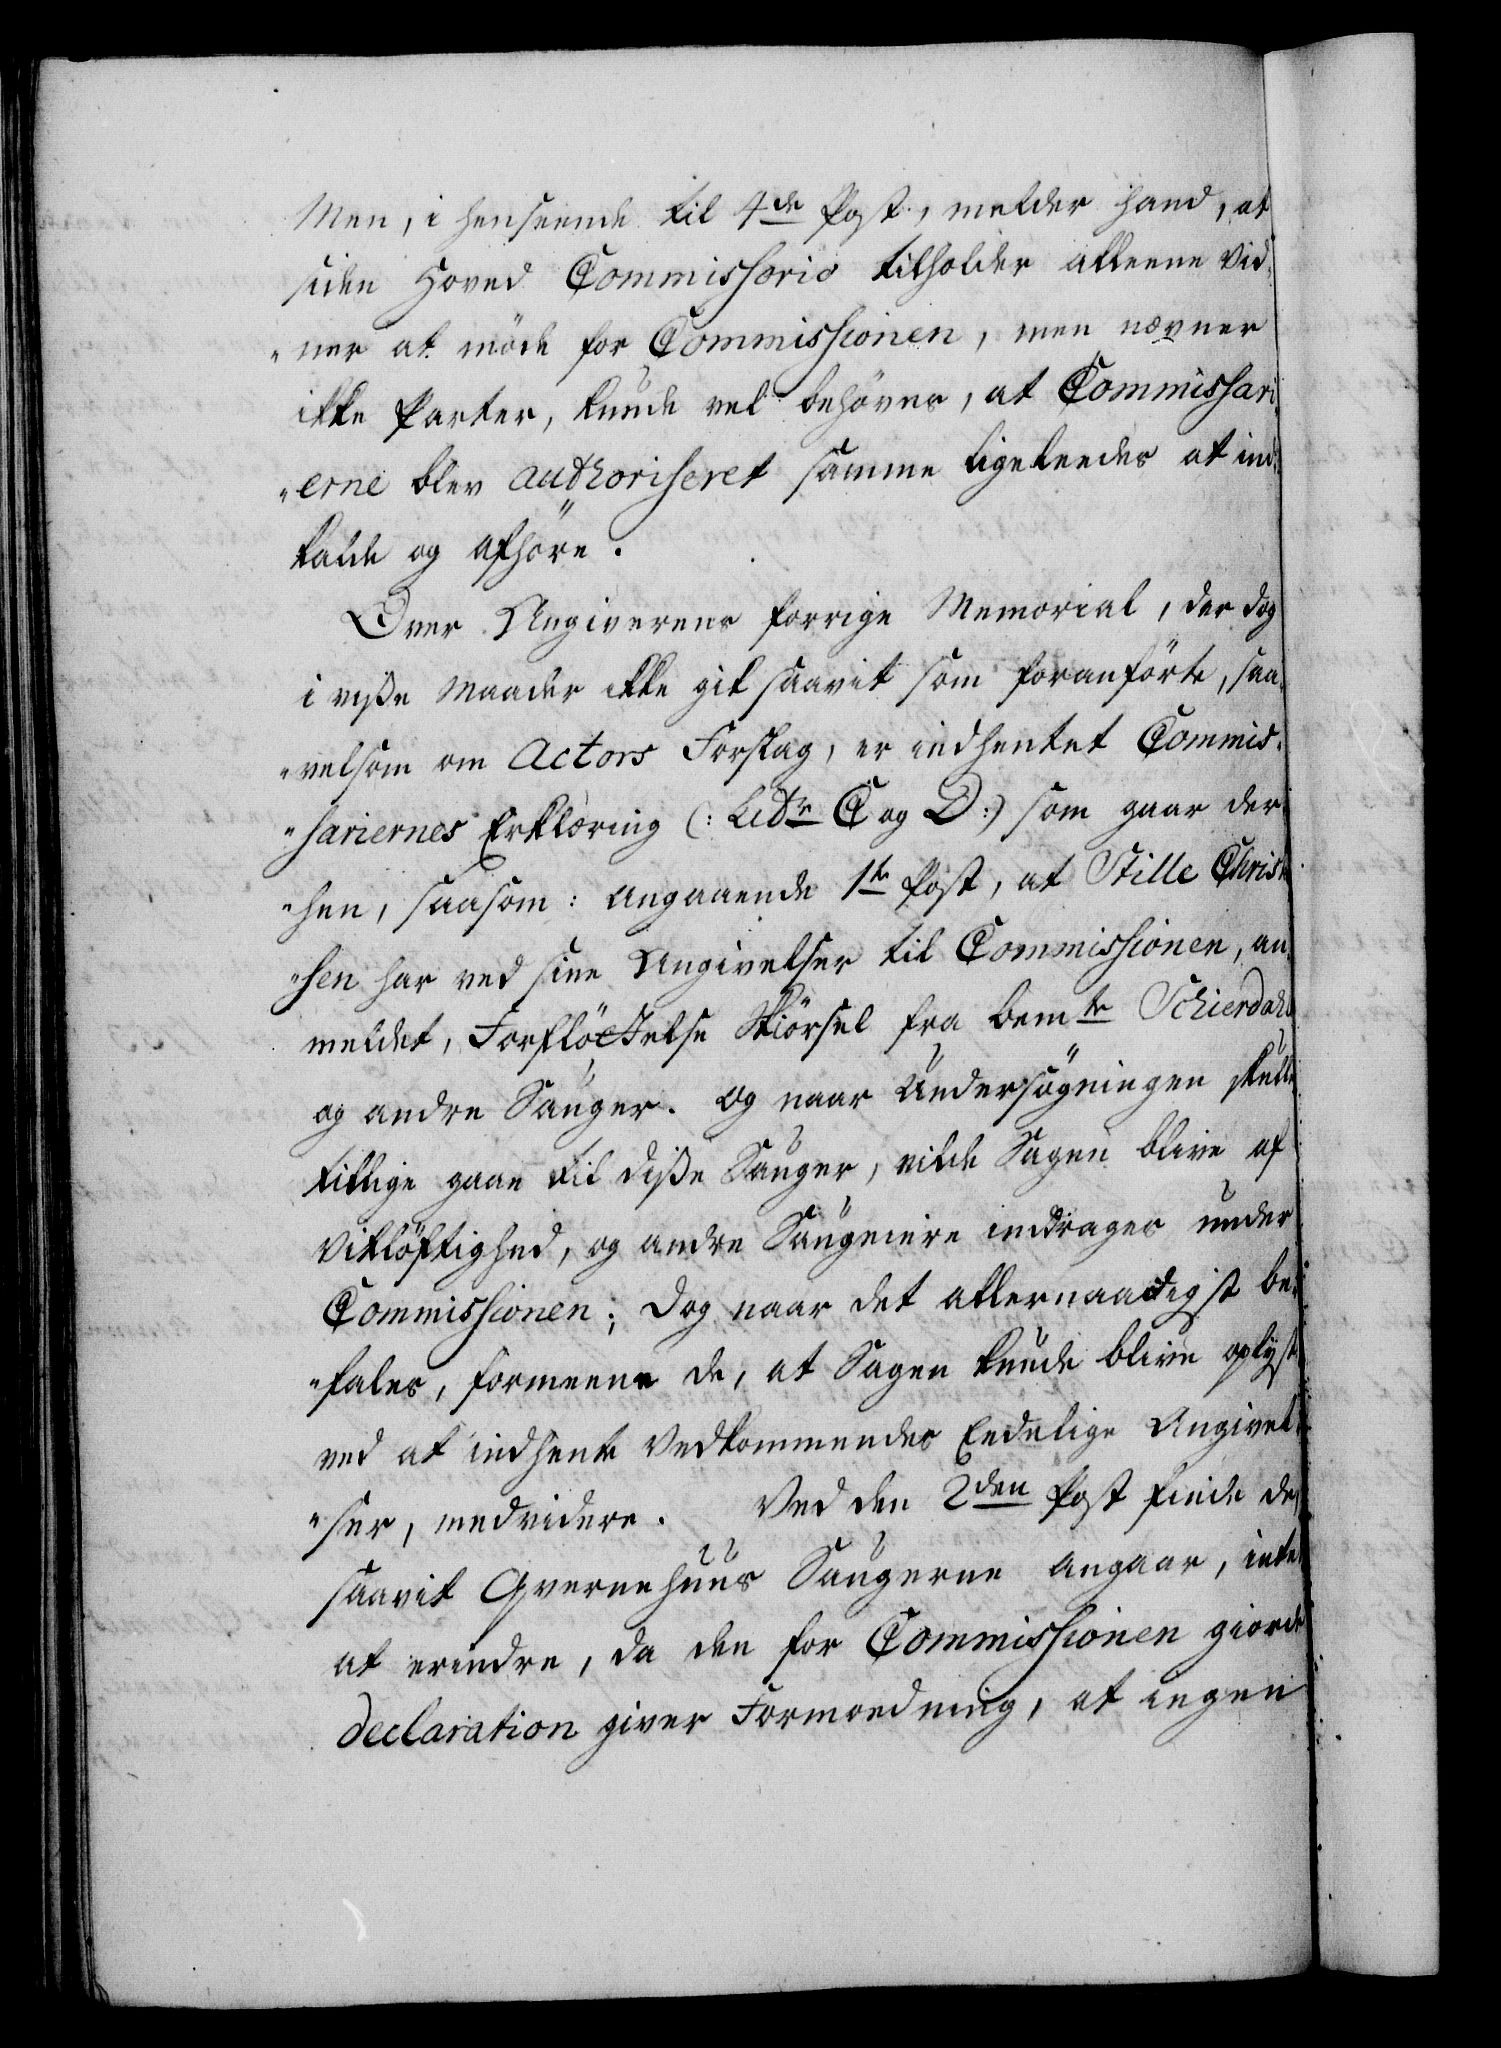 Men, i henseende til 4de Post, melder hand, at
siden Hoved Commissorio tilholder alleene Vid-
"ner at møde for Commissionen, men nævner
ikke Parter, kunde vel behøves, at Commissari-
"erne blev authoriseret samme ligeleedes at ind-
kalde og afhöre.
Over Angiverens forrige Memorial, der dog
i visse Maader ikke gik saavit som foranförte, saa-
"velsom om Actors Forslag, er indhentet Commis-
"sariernes Erklæring (: Litr C og D :) som gaar der-
"hen, saasom: angaaende 1te Post, at Stille Chris-
"sen har ved sine Angivelser til Commissionen, an-
meldet, Forflöttelse Skiörsel fra bemte Schierdahl
og andre Sauger. Og naar Undersögningen skulle
tillige gaae til disse Sauger, vilde Sagen blive af
Vitlöftighed, og andre Saugeiere inddrages under
Commissionen; Dog naar det allernaadigst be-
"fales, formeene de, at Sagen kunde blive oplyst
ved at indhente Vedkommendes Eedelige Angivel-
"ser, medvidere. Ved den 2den Post finde de,
saavit Qvernehuus Saugerne angaar, intet
at erindre, da den for Commissionen giorde
declaration giver Formodning, at ingen